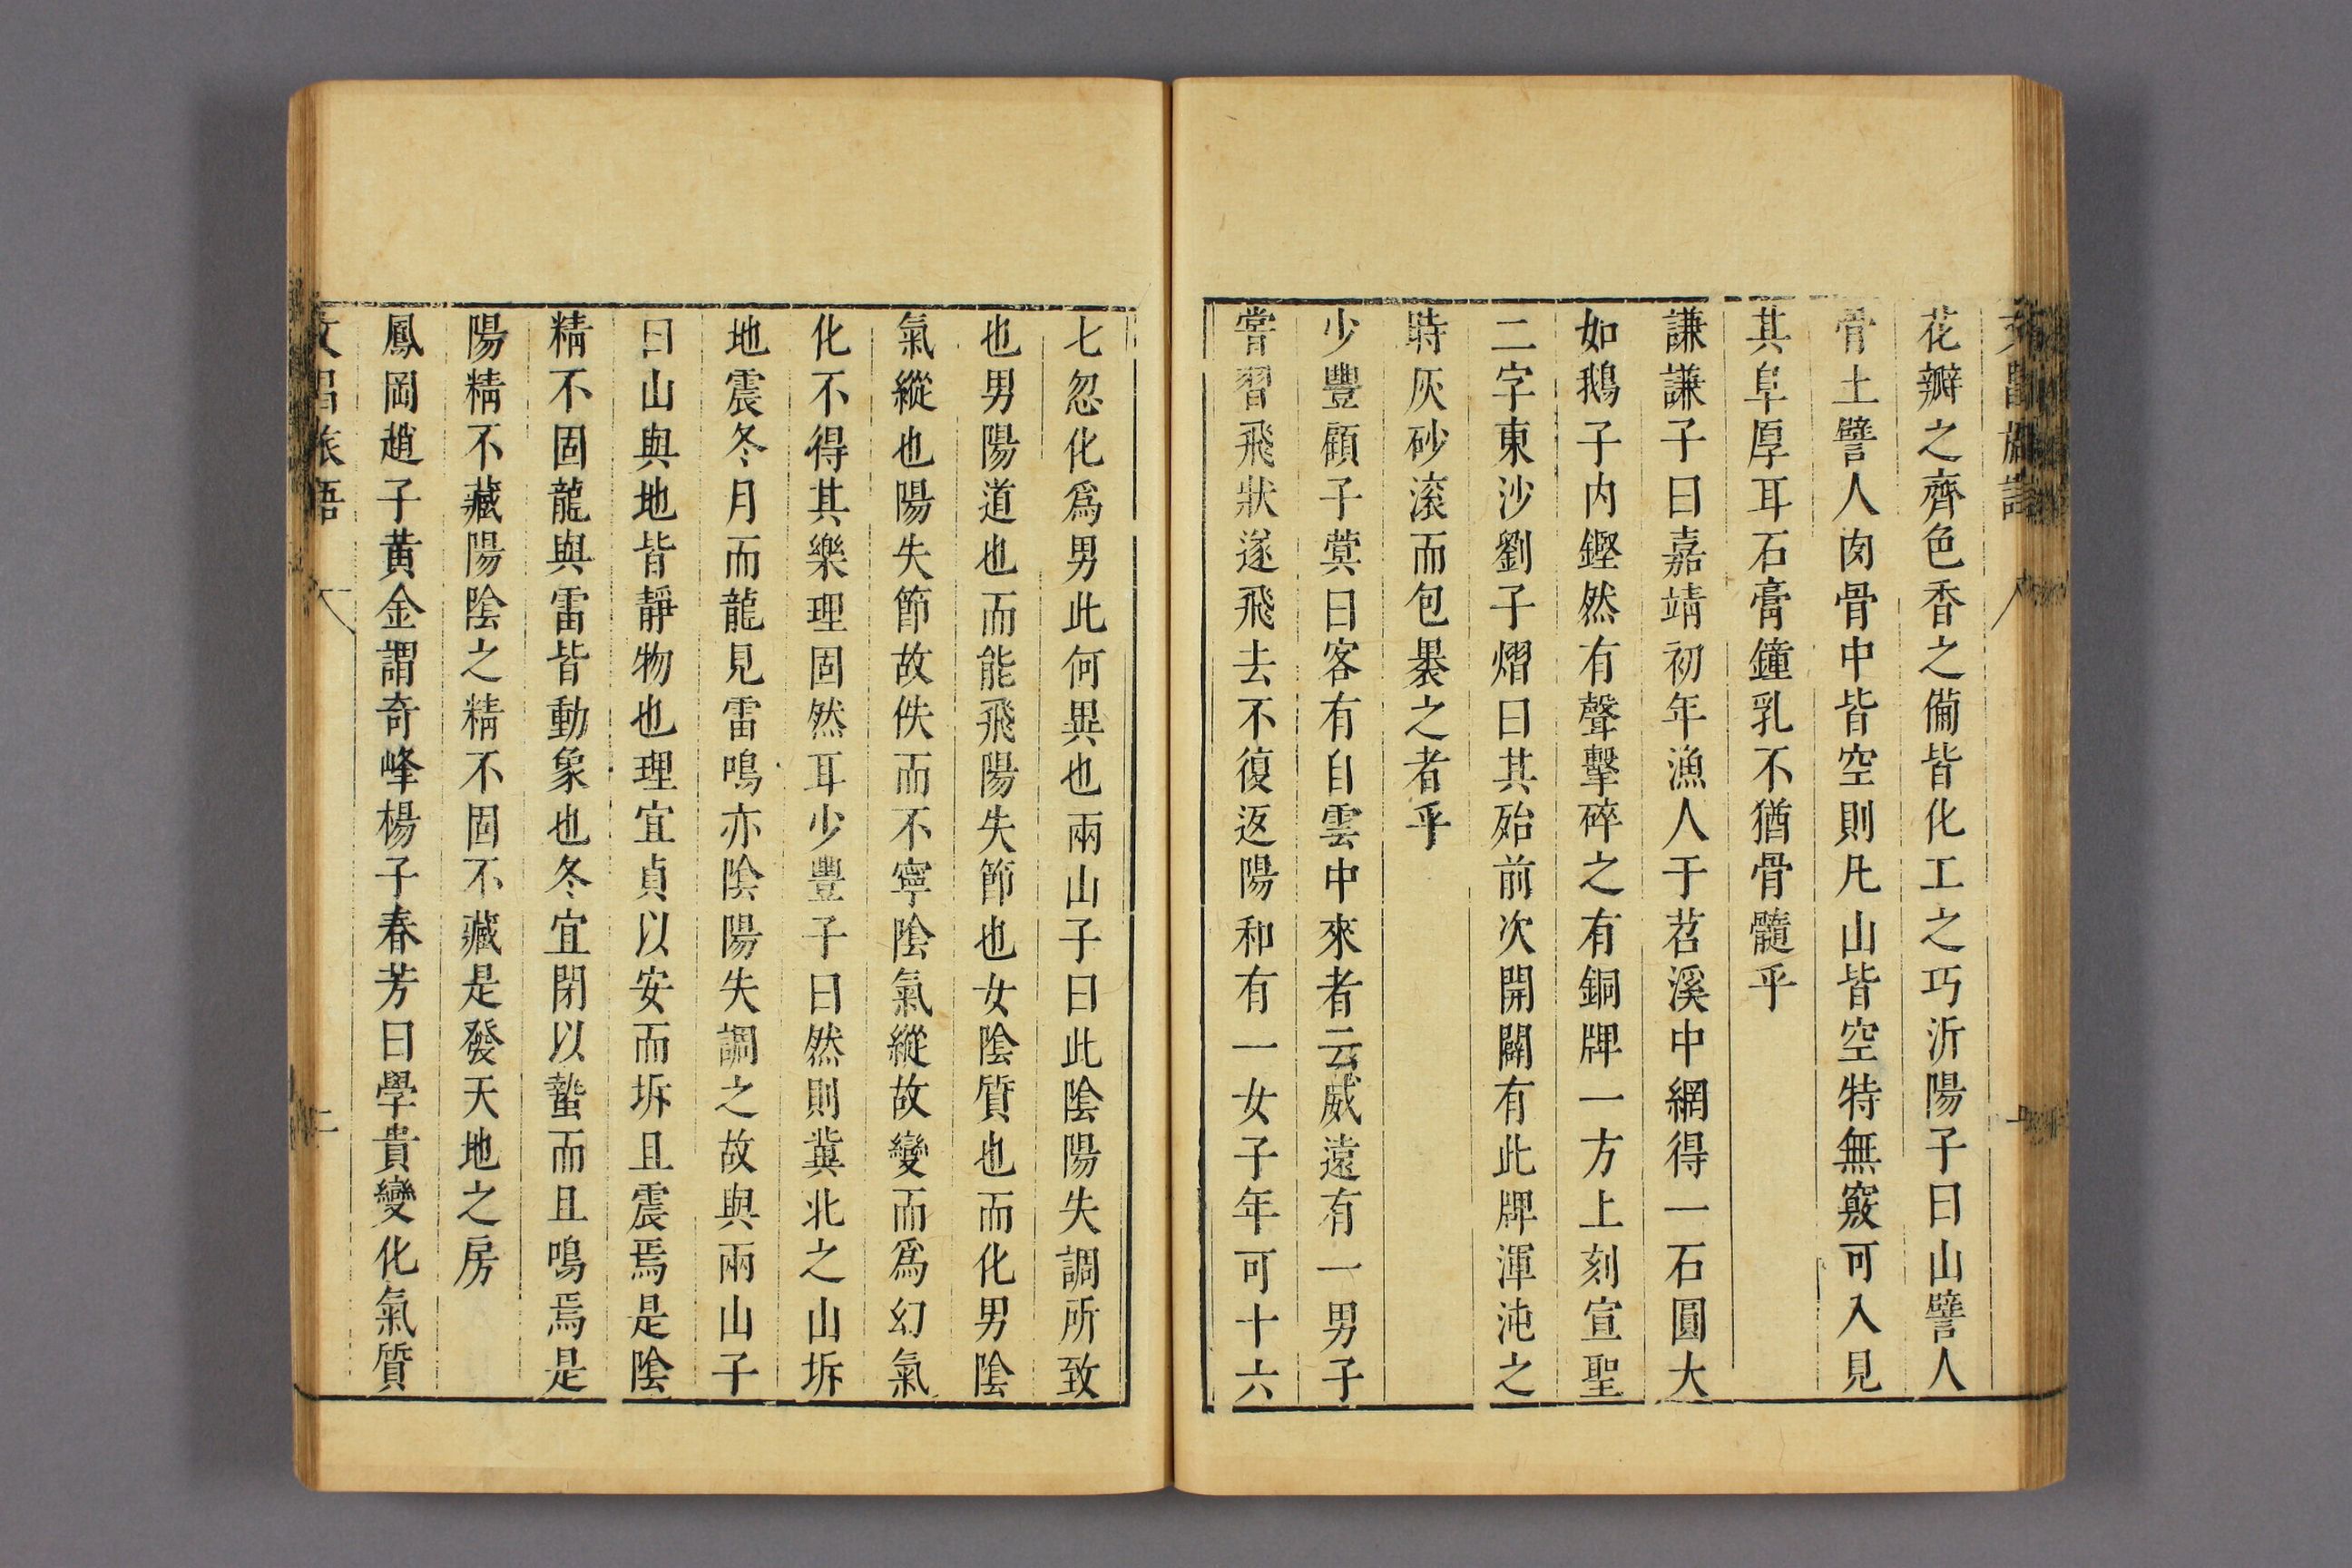 花瓣之齊色香之備皆化工之巧沂陽子曰山譬人
骨土譬人肉骨中皆空則凡山皆空特無竅可入見
其阜厚耳石膏鐘乳不猶骨髓乎
謙謙子曰嘉靖初年漁人于苕溪中網得一石圓大
如鵝子内鏗然有聲擊碎之有銅牌一方上刻宣聖
二字東沙劉子熠曰其殆前次開闢有此牌渾沌之
時灰砂滚而包褁之者乎
少豐顧子蓂曰客有自雲中來者云威遠有一男子
嘗習飛狀遂飛去不復返陽和有一女子年可十六
七忽化爲男此何異也兩山子曰此陰陽失調所致
也男陽道也而能飛陽失節也女陰質也而化男陰
氣縱也陽失節故佚而不寧陰氣縱故變而爲幻氣
化不得其樂理固然耳少豐子曰然則冀北之山坼
地震冬月而龍見雷鳴亦陰陽失調之故與兩山子
曰山與地皆靜物也理宜貞以安而坼且震焉是陰
精不固龍與雷皆動象也冬宜閉以蟄而且鳴焉是
陽精不藏陽陰之精不固不藏是發天地之房
鳳岡趙子黃金謂奇峰楊子春芳曰學貴變化氣質
文昌旅語 二